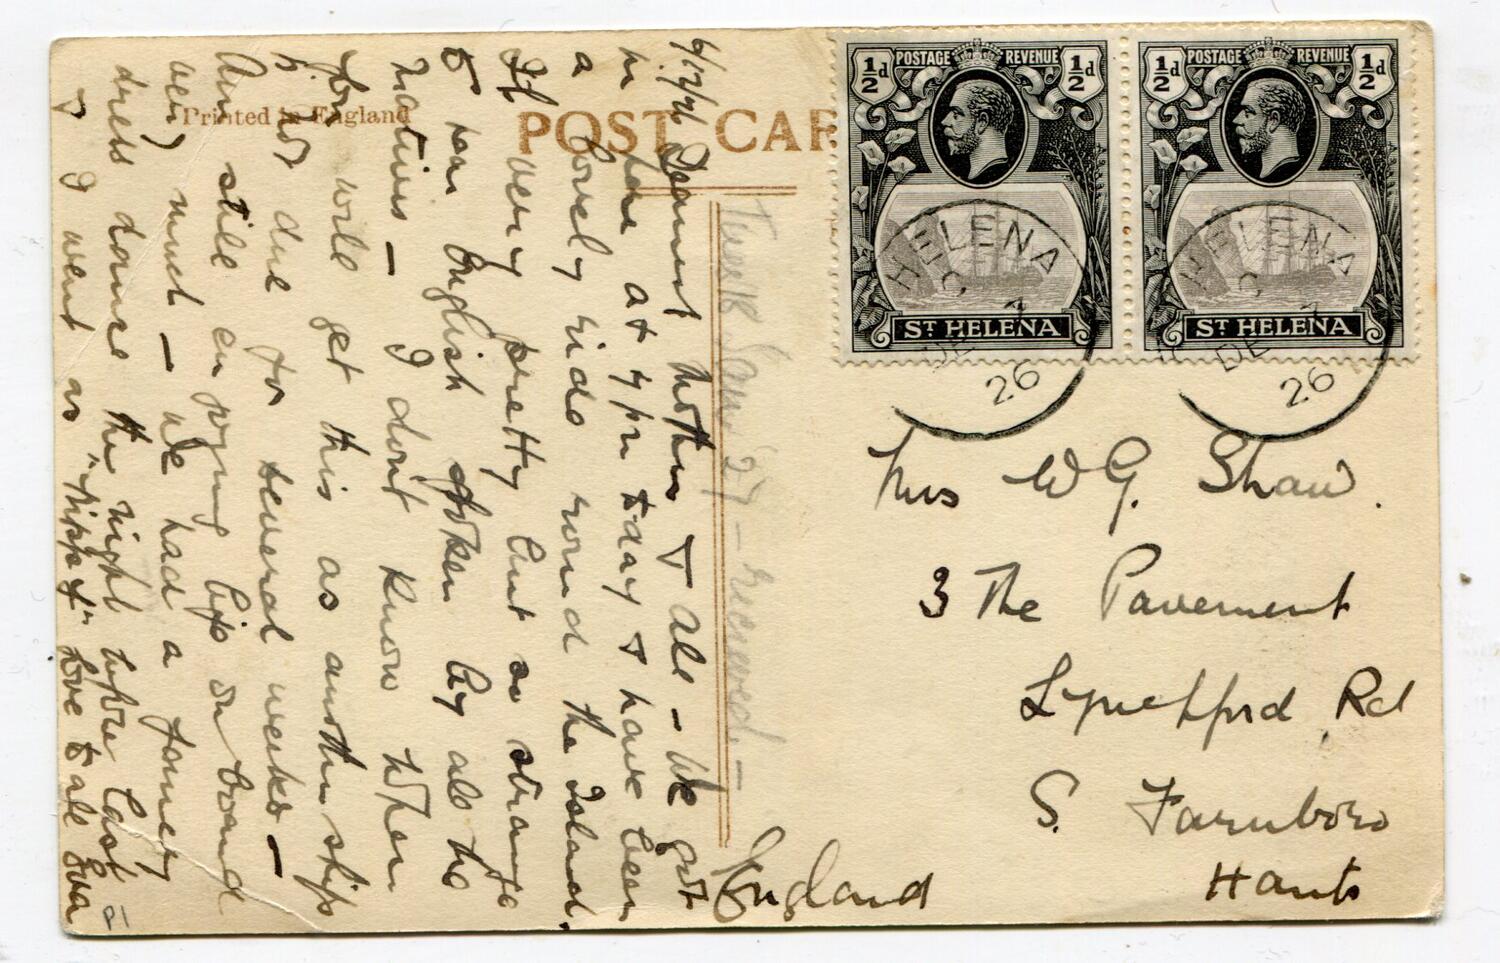 Printed in England
POST CAR
POSTAGE REVENUE
½d ½d
ST HELENA
POSTAGE REVENUE
½d ½d
ST HELENA
HELENA
DE 7
26
HELENA
DE 7
26
6/12/26 Dearest Mother & all – We got
in here at 4 pm today & have been
a lovely ride round the Island.
It very pretty but so strange
to hear English spoken by all the
natives – I don't know when
you will get this as another ship
is not due for several weeks –
Am still enjoying life on board
very much – We had a fancy
dress dance the night before last
& I went as "Nippy" love to all Eva
Jan '27 – received –
Mrs W G. Shaw.
3 The Pavement
Lynchford Rd
S. Farnboro
Hants
England